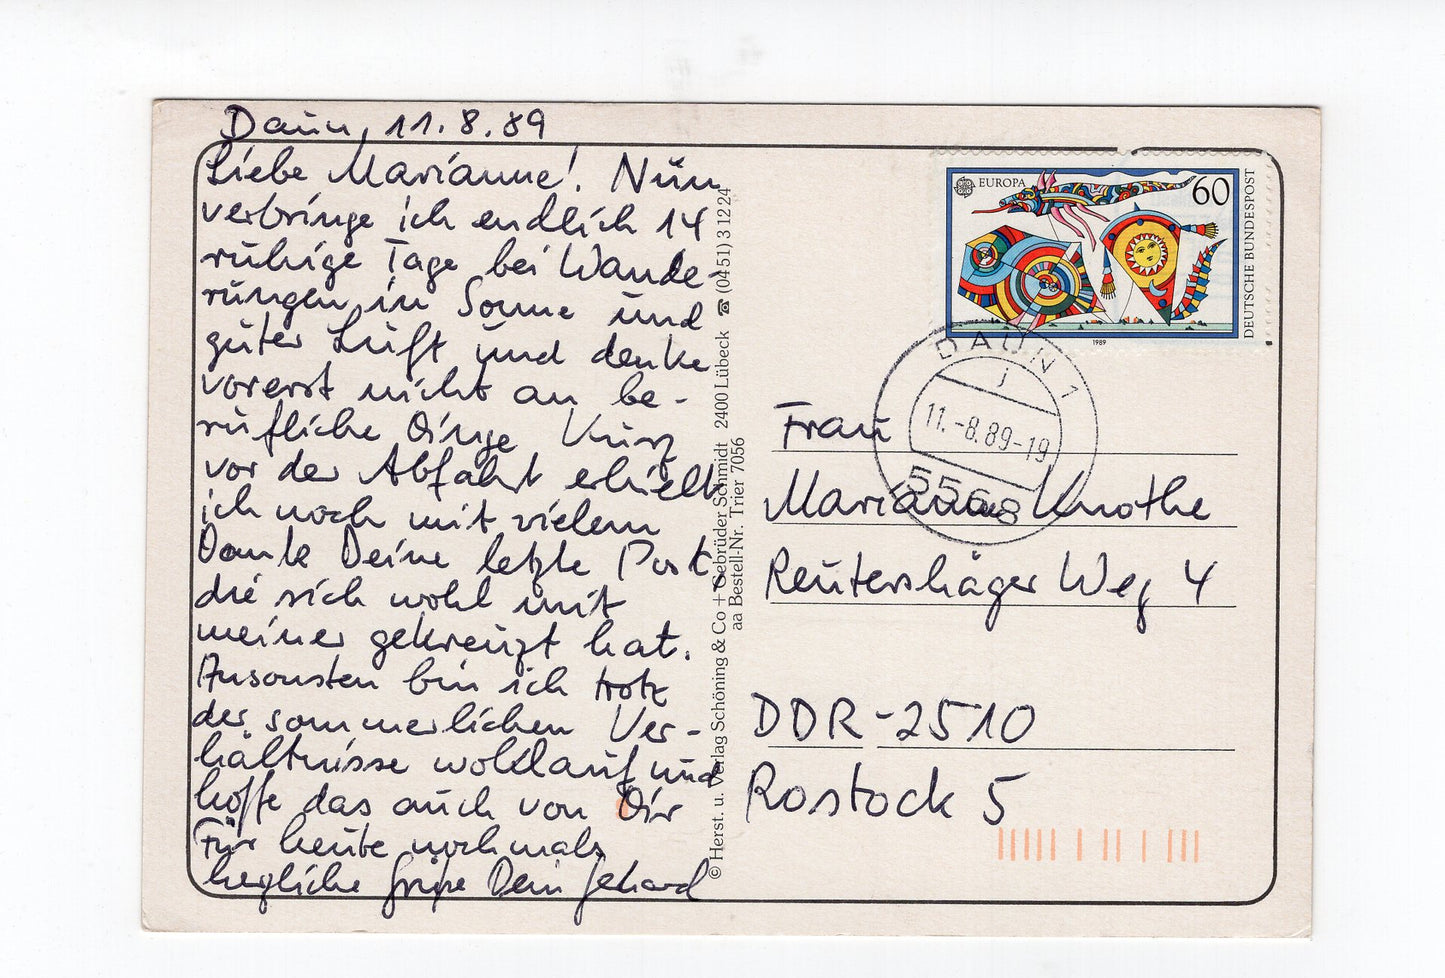 Daun, 11.8.89
Liebe Marianne! Nun
verbringe ich endlich 14
ruhige Tage bei Wande-
rungen in Sonne und
guter Luft und denke
vorerst nicht an be-
rufliche Dinge Kurz
vor der Abfahrt erhielt
ich noch mit vielem
Dank Deine letzte Post,
die sich wohl mit
meiner gekreuzt hat.
Ansonsten bin ich trotz
der sommerlichen Ver-
hältnisse wohlauf und
hoffe das auch von Dir
Für heute nochmals
herzliche Grüße Dein Gehard
© Herst. u. Verlag Schöning & Co + Gebrüder Schmidt 2400 Lübeck ☎ (04 51) 3 12 24
aa Bestell-Nr. Trier 7056
EUROPA 60
DEUTSCHE BUNDESPOST
1989
DAUN 1
j
11.-8.89-19
5568
Frau
Marianne Knothe
Reutershäger Weg 4
DDR-2510
Rostock 5